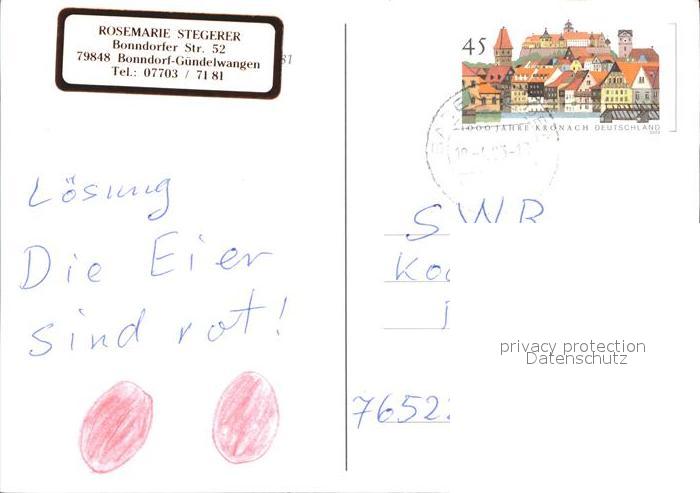 ROSEMARIE STEGERER
Bonndorfer Str. 52
79848 Bonndorf-Gündelwangen
Tel.: 07703 / 71 81
81
45
1000 JAHRE KRONACH DEUTSCHLAND
Lösung
Die Eier
sind rot!
SWR
privacy protection
Datenschutz
7652